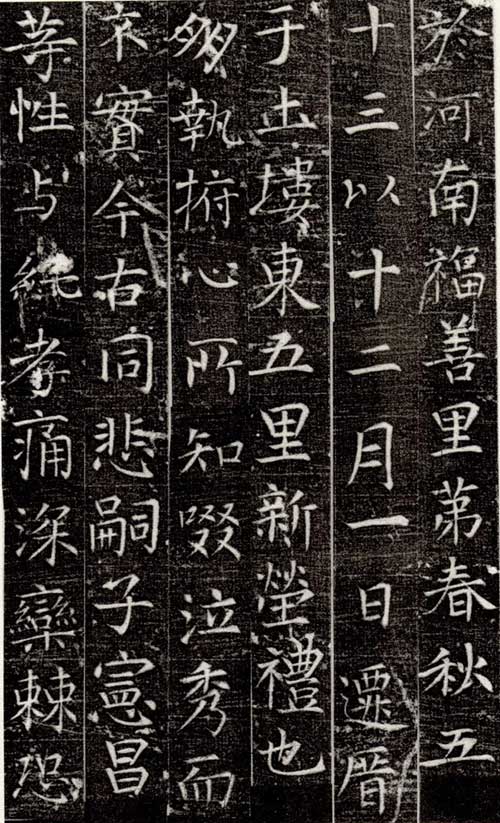 於河南福善里苐春秋五
十三以十二月一日遷厝
于土塿東五里新塋禮也
朋執拊心所知啜泣秀而
不實今右同悲嗣子憲昌
等性与純孝痛深欒棘恐